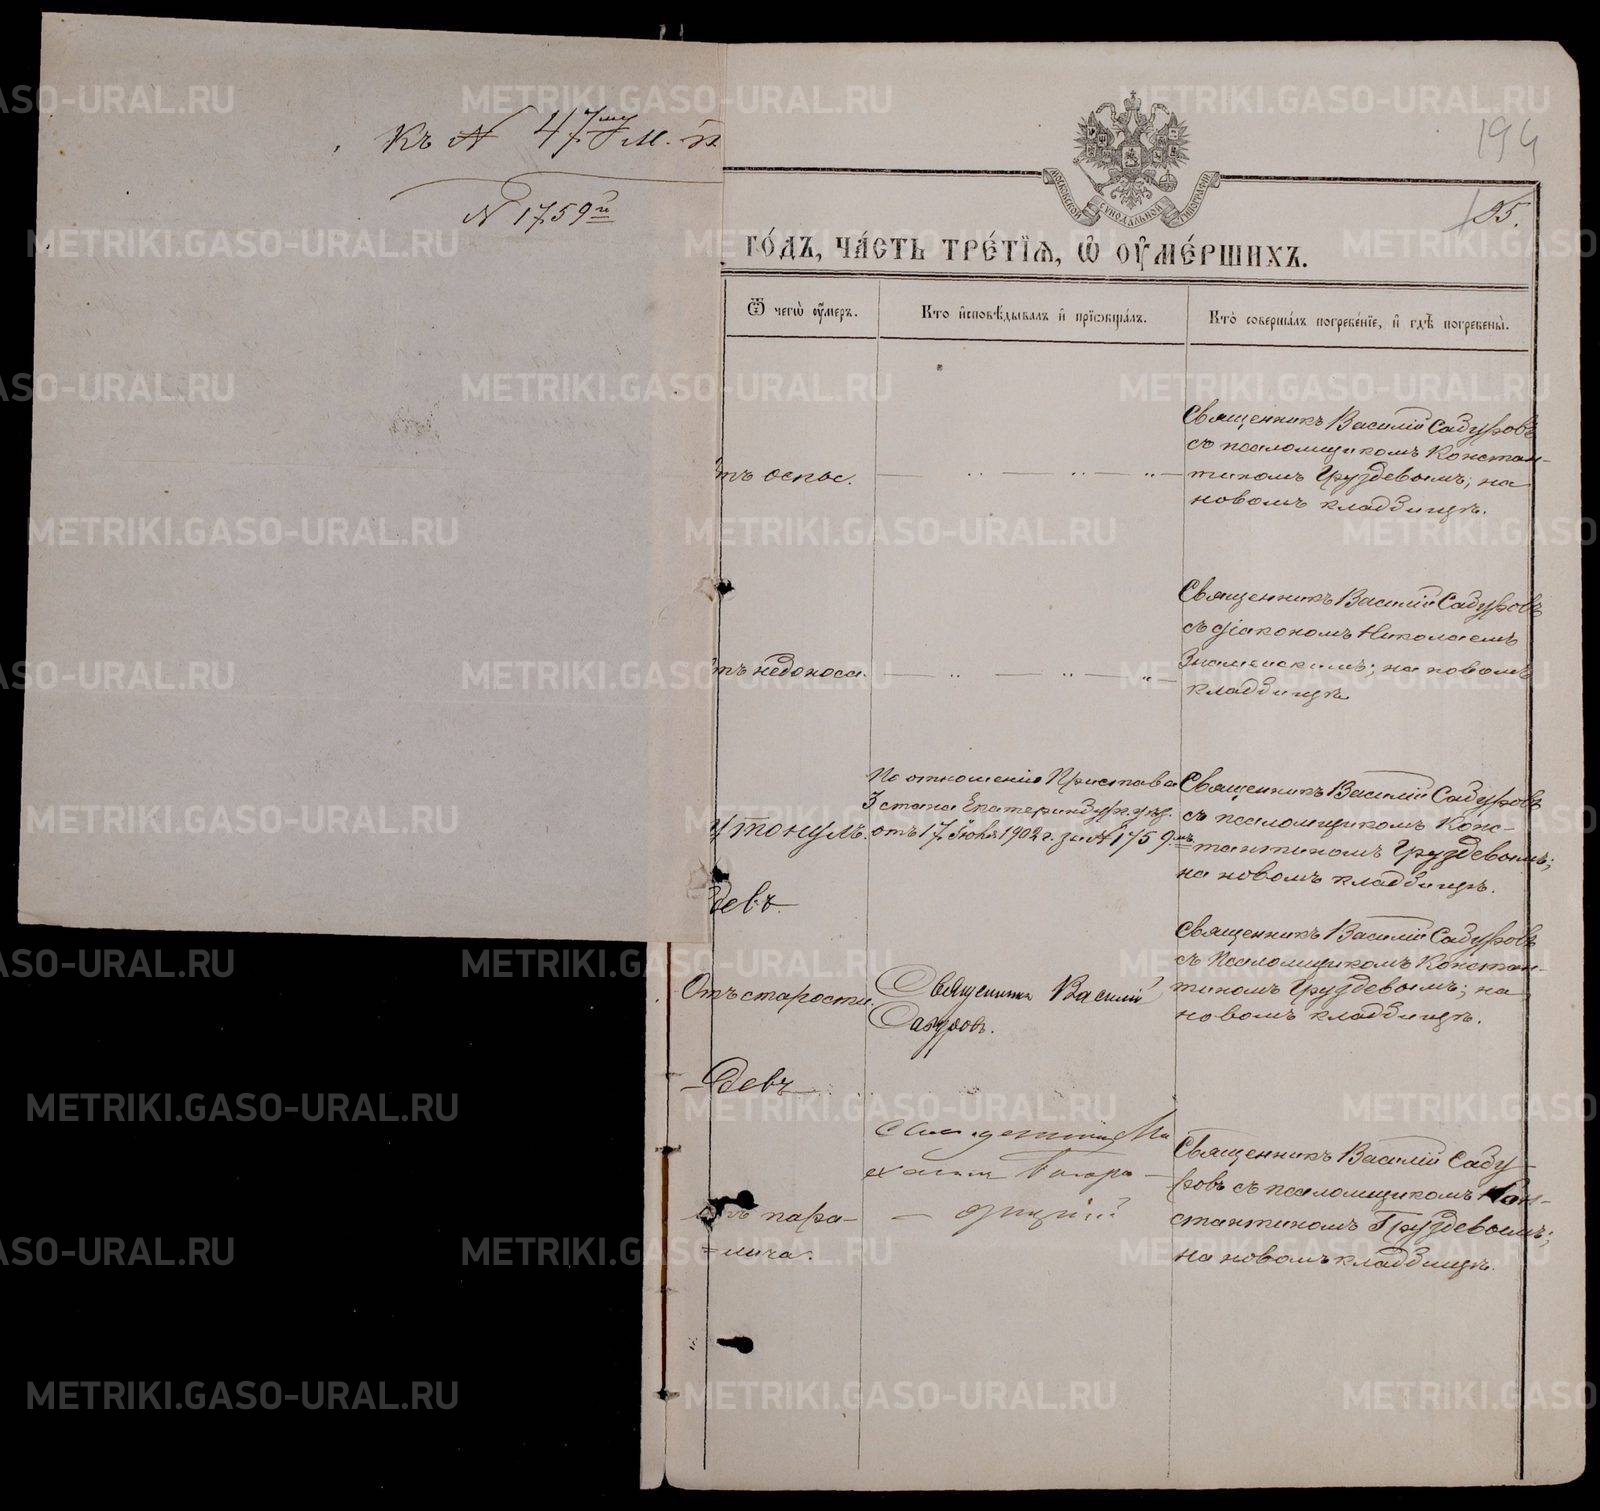 Къ № 47му м. п.
№ 1759й
194
105.
МОСКОВСКОЙ СѴНОДАЛЬНОЙ ТИПОГРАФІИ
ГО́ДЪ, ЧА́СТЬ ТРЕ́ТІѦ, Ѡ҆ ОУ҆МЕ́РШИХЪ.
Ѿ чегѡ̀ оу҆́меръ.
Кто̀ и҆сповѣ́дывалъ и҆ прїѡбща́лъ.
Кто̀ соверша́лъ погребе́нїе, и҆ гдѣ̀ погребены̀.
тъ оспы.
Священникъ Василій Садуровъ
съ псаломщикомъ Констан-
тиномъ Груздевымъ; на
новомъ кладбищѣ.
тъ недоноса.
Священникъ Василій Садуровъ
съ діакономъ Николаемъ
Знаменскимъ; на новомъ
кладбищѣ
утонулъ.
По отношенію Пристава
3 стана Екатеринбур. уѣз.
отъ 17 Іюня 1902 г. за № 1759мъ
Священникъ Василій Садуровъ
съ псаломщикомъ Конс-
тантиномъ Груздевымъ;
на новомъ кладбищѣ.
девъ
Отъ старости.
Священникъ Василій
Садуровъ.
Священникъ Василій Садуровъ
съ Псаломщикомъ Констан-
тиномъ Груздевымъ; на
новомъ кладбищѣ.
девъ
тъ пара-
=лича.
Священникъ Василій Саду-
ровъ съ псаломщикомъ Кон-
стантиномъ Груздевымъ;
на новомъ кладбищѣ.
METRIKI.GASO-URAL.RU